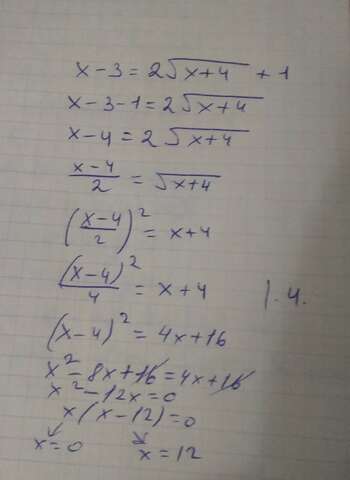 x-3=2√x+4 +1
x-3-1=2√x+4
x-4=2√x+4
x-4/2=√x+4
(x-4/2)²=x+4
(x-4)²/4=x+4 |·4.
(x-4)²=4x+16
x²-8x+16=4x+16
x²-12x=0
x(x-12)=0
↙ ↘
x=0 x=12